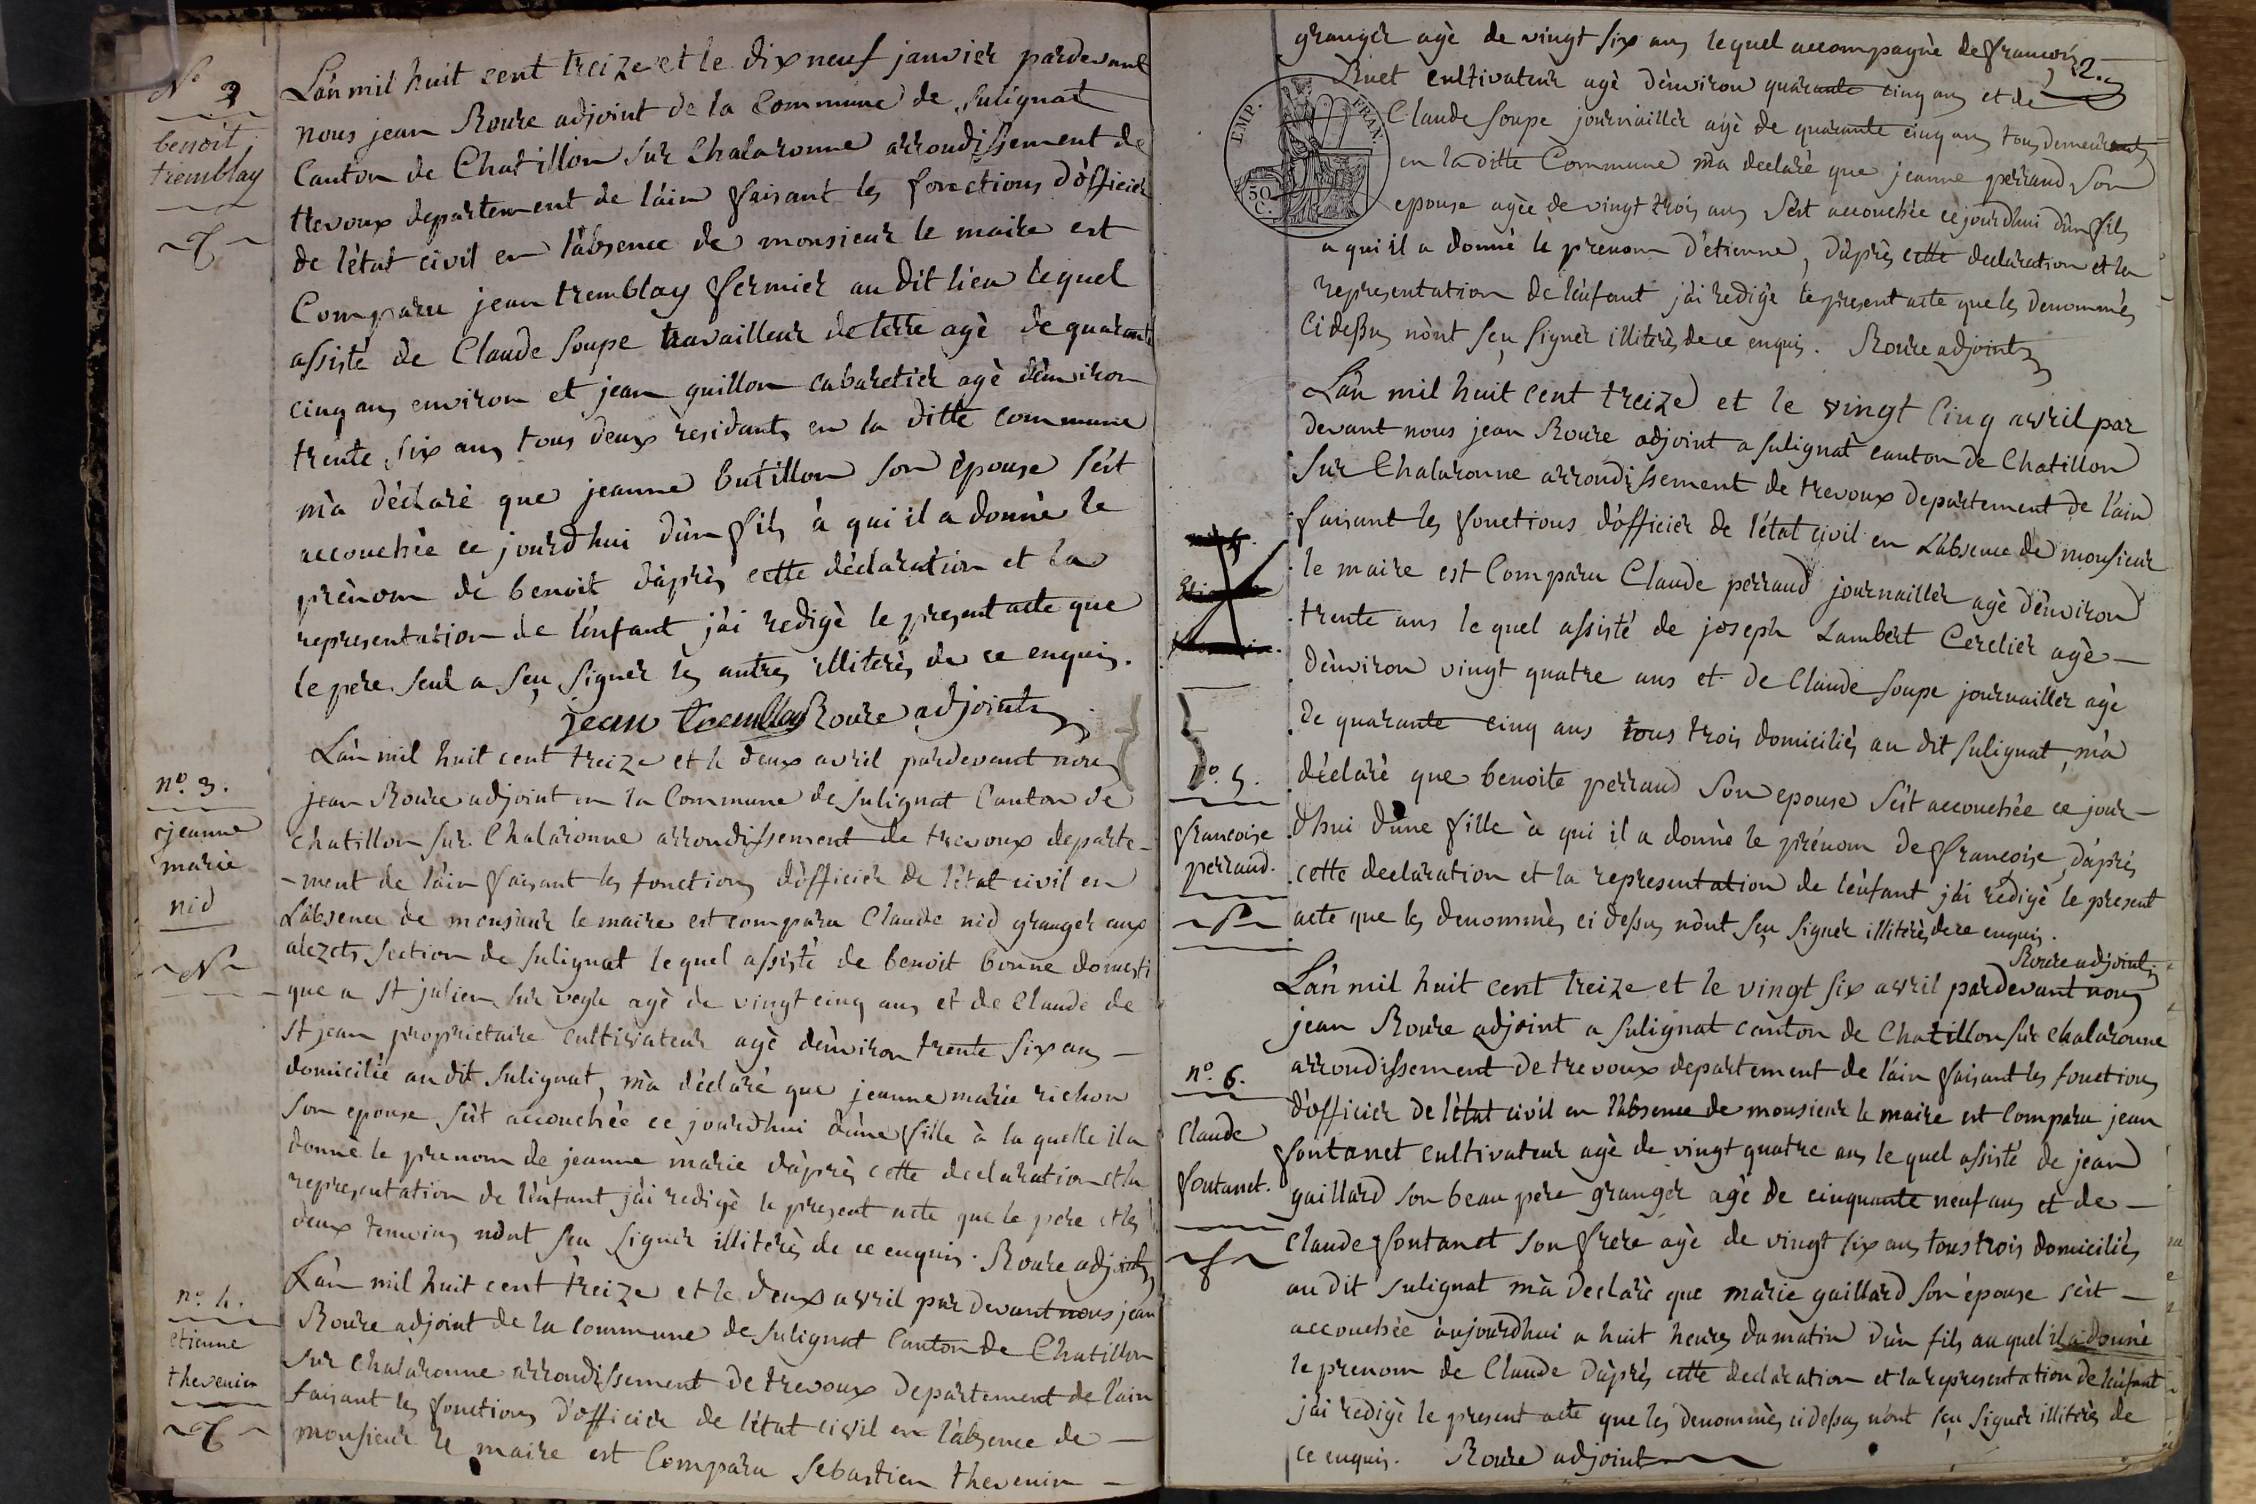 N° 2
benoit
tremblay
T
L'an mil huit cent treize et le dix neuf janvier pardevant
nous jean Roure adjoint de la Commune de Sulignat
Canton de Chatillon sur Chalaronne arrondissement de
trevoux departement de l'ain faisant les fonctions d'officier
de l'état civil en l'absence de monsieur le maire est
Comparu jean tremblay fermier au dit lieu lequel
assisté de Claude Soupe travailleur de terre agè de quarante
cinq ans environ et jean guillon cabaretier agè d'environ
trente six ans tous deux residants en la ditte commune
m'a déclaré que jeanne butillon son épouse s'est
accouchée ce jourd'hui d'un fils à qui il a donnè le
prènom de benoit d'après cette déclaration et la
representation de l'enfant j'ai redigè le present acte que
le pere seul a sçu signer les autres illiterès de ce enquis.
jean tremblay Roure adjoint
n° 3.
jeanne
marie
nid
N
L'an mil huit cent treize et le deux avril pardevant nous
jean Roure adjoint en la Commune de Sulignat Canton de
chatillon sur Chalaronne arrondissement de trevoux departe-
-ment de l'ain faisant les fonctions d'officier de l'état civil en
L'absence de monsieur le maire est comparu Claude nid granger aux
alezets section de Sulignat lequel assisté de benoit bonne domesti
que a St julien sur veyle agè de vingt cinq ans et de Claude de
St jean proprietaire cultivateur agè d'environ trente six ans —
domicilié au dit Sulignat, m'a déclaré que jeanne marie richon
son epouse s'est accouchée ce jourd'hui d'une fille à la quelle il a
donné le prenom de jeanne marie d'après cette declaration et la
representation de l'enfant j'ai redigè le present acte que le pere et les
deux temoins n'ont sçu signer illiterès de ce enquis. Roure adjoint
n° 4.
etienne
thevenin
T
L'an mil huit cent treize et le deux avril par devant nous jean
Roure adjoint de la commune de Sulignat Canton de Chatillon
sur chalaronne arrondissement de trevoux departement de l'ain
faisant les fonctions d'officier de l'état civil en l'absence de —
monsieur le maire est Comparu Sebastien thevenin —
2.
granger agè de vingt six ans lequel accompagnè de françois
Ruet cultivateur agè d'environ quarante cinq ans et de
Claude Soupe journaillier agè de quarante cinq ans tous demeurants
en la ditte Commune m'a declaré que jeanne perraud son
epouse agèe de vingt trois ans s'est accouchée ce jourd'hui d'un fils
a qui il a donné le prenom d'etienne, d'après cette declaration et la
representation de l'enfant j'ai redigé le present acte que les denommés
ci dessus n'ont sçu signer illiterès de ce enquis. Roure adjoint
IMP. FRAN.
50
C.
L'an mil huit cent treize et le vingt cinq avril par
devant nous jean Roure adjoint a Sulignat canton de Chatillon
sur Chalaronne arrondissement de trevoux departement de l'ain
faisant les fonctions d'officier de l'état civil en L'absence de monsieur
le maire est Comparu Claude perraud journaillier agè d'environ
trente ans le quel assisté de joseph Lambert Cerclier agè —
d'environ vingt quatre ans et de Claude Soupe journaillier agè
de quarante cinq ans tous trois domiciliés au dit Sulignat, m'a
déclaré que benoite perraud son epouse s'est accouchée ce jour-
d'hui d'une fille à qui il a donnè le prénom de françoise, d'après
cette declaration et la representation de l'enfant j'ai redigè le present
acte que les denommès ci dessus n'ont sçu signer illiterès de ce enquis.
Roure adjoint
n° 5.
francoise
perraud.
P
L'an mil huit cent treize et le vingt six avril pardevant nous
jean Roure adjoint a Sulignat canton de Chatillon sur chalaronne
arrondissement de trevoux departement de l'ain faisant les fonctions
d'officier de l'état civil en l'absence de monsieur le maire est Comparu jean
fontanet cultivateur agè de vingt quatre ans le quel assisté de jean
gaillard son beau père granger agè de cinquante neuf ans et de —
Claude fontanet son frere agè de vingt six ans tous trois domiciliés
au dit Sulignat m'a declarè que marie gaillard son épouse s'est —
accouchée aujourd'hui a huit heures du matin d'un fils au quel il a donné
le prenom de Claude d'après cette declaration et la representation de l'enfant
j'ai redigè le present acte que les denommès ci dessus n'ont sçu signer illiterès de
ce enquis. Roure adjoint
n° 6.
Claude
fontanet.
f